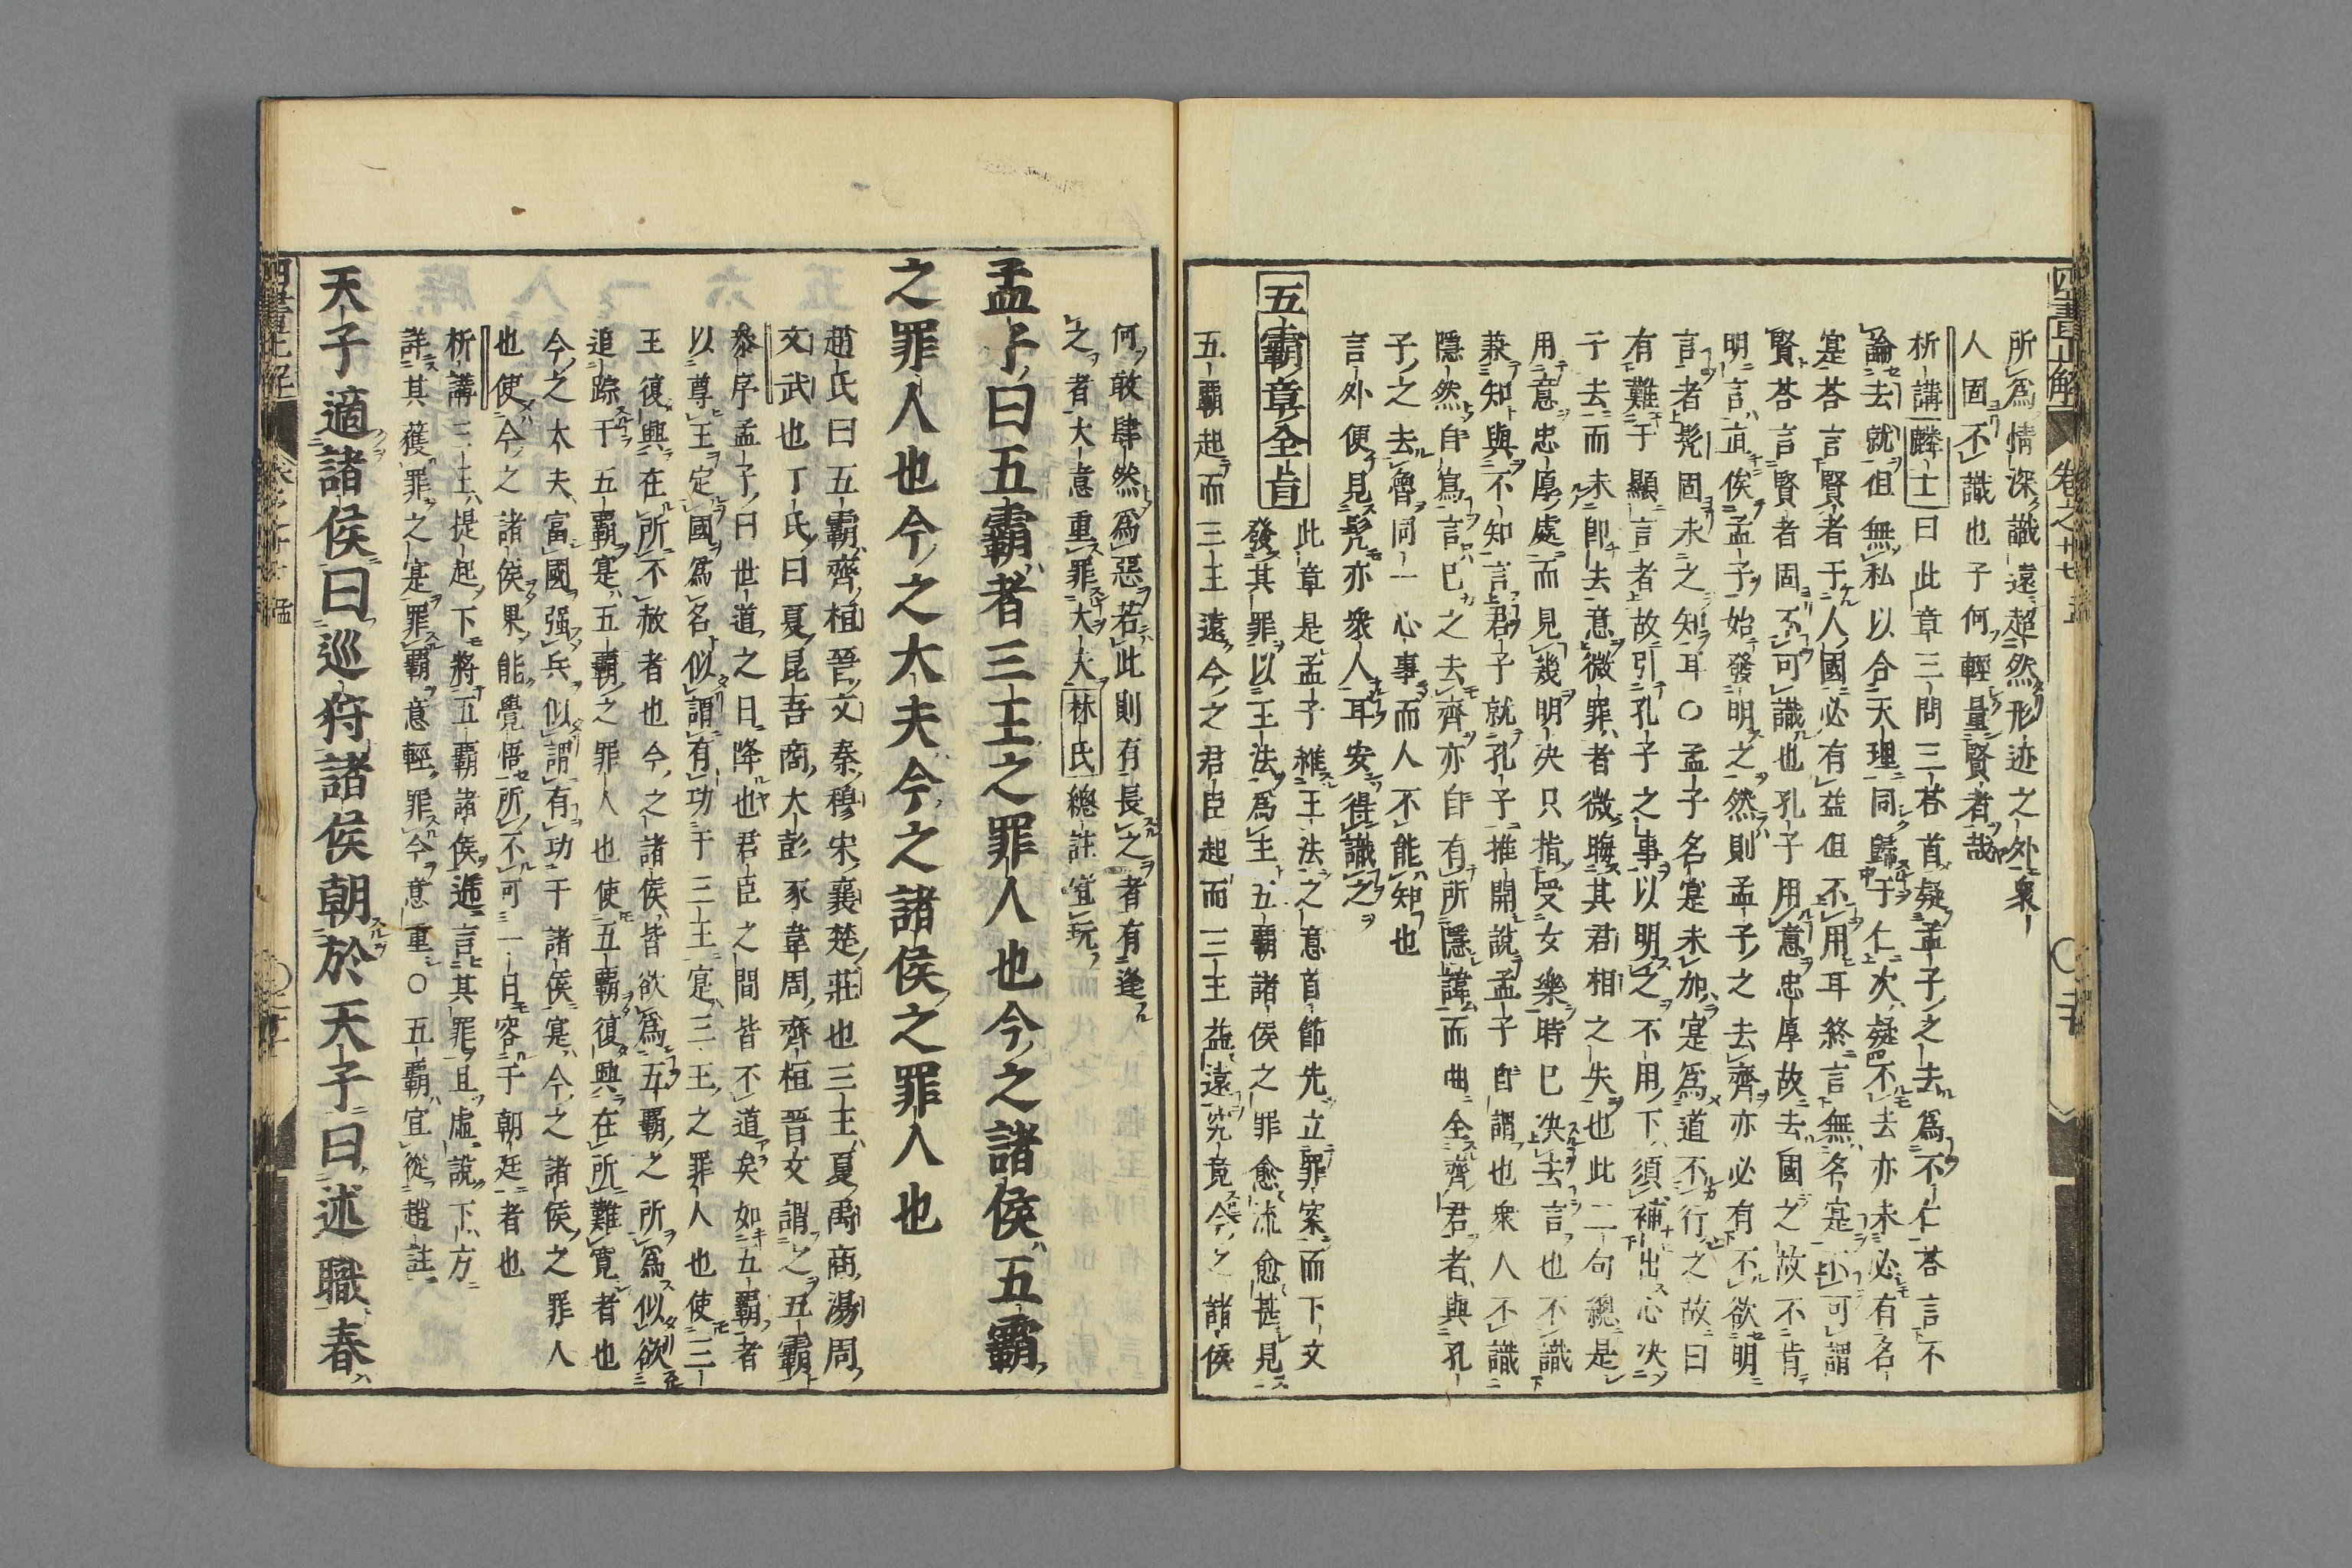 所爲情深識遠超然形迹之外衆
人固不識也子何輕量賢者哉
析講麟士曰此章三問三荅首疑孟子之去爲不仁荅言不
論去就但無私以合天理同歸于仁次疑不去亦未必有名
寔荅言賢者于人國必有益但不用耳終言無名寔不可謂
賢荅言賢者固不可識也孔子用意忠厚故去國之故不肯
明言直俟孟子始發明之然則孟子之去齊亦必有不欲明
言者髡固未之知耳○孟子名寔未加寔爲道不行之故曰
有難于顯言者故引孔子之事以明之不用下須補出心决
于去而未卽去意微罪者微晦其君相之失也此二句總是
用意忠厚處而見幾明决只指受女樂時已决去言也不識
兼知與不知言君子就孔子推開說孟子自謂也衆人不識
隱然自寫言已之去齊亦自有所隱諱而曲全齊君者與孔
子之去魯同一心事而人不能知也
言外便見髡亦衆人耳安得識之
五霸章全旨
此章是孟子維王法之意首節先立罪案而下文
發其罪以王法爲主五霸諸侯之罪愈流愈甚見
五霸起而三王遠今之君臣起而三王益遠究竟今之諸侯
何敢肆然爲惡若此則有長之者有逢
之者大意重罪大夫林氏總註宜玩
孟子曰五霸者三王之罪人也今之諸侯五霸
之罪人也今之大夫今之諸侯之罪人也
趙氏曰五霸齊桓晉文秦穆宋襄楚莊也三王夏禹商湯周
文武也丁氏曰夏昆吾商大彭豕韋周齊桓晉文謂之五霸
叅序孟子曰世道之日降也君臣之間皆不道矣如五霸者
以尊王定國爲名似謂有功于三王寔三王之罪人也使三
王復興在所不赦者也今之諸侯皆欲爲五霸之所爲似欲
追踪于五霸寔五霸之罪人也使五霸復興在所難寛者也
今之大夫富國强兵似謂有功于諸侯寔今之諸侯之罪人
也使今之諸侯果能覺悟所不可一日容于朝廷者也
析講三王提起下將五霸諸侯遞言其罪且虛說下方
詳其獲罪之寔罪霸意輕罪今意重○五霸宜從趙註
天子適諸侯曰巡狩諸侯朝於天子曰述職春